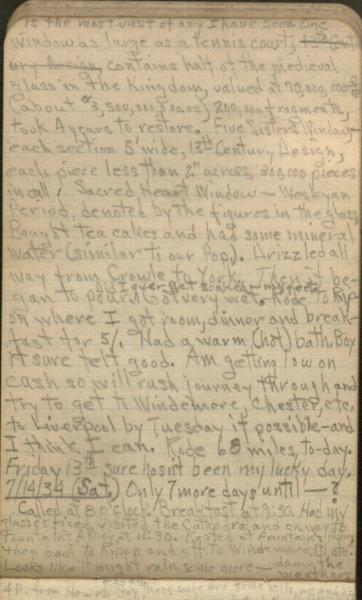 is the most vast of any I have seen. One
window as large as a tennis court, 
 contains half of the medieval
glass in the Kingdom, valued at 70,000,000
(about $3,500,000,00.00) 200,000 fragments,
took 4 years to restore. Five Sisters Window,
each section 5' wide, 13th Century Design,
each piece less than 2" across, 200,000 pieces
in all! Sacred Heart Window - Wesleyan
Period, denoted by the figures in the glass,
Bought tea cakes and had some mineral
water (similar to our Pop). Drizzled all
way from Crowle to York. Then it be-
gan to pour. Did I ever get soaked - my feet
Got very wet. Rode to Rip-
on where I got room, dinner and break-
fast for 5/. Had a warm (hot) bath. Boy
it sure felt good. Am getting low on
cash so will rush journey through and
try to get to Windemere, Chester, etc.
to Liverpool by Tuesday if possible - and
I think I can. Rode 68 miles, to-day.
Friday 13th sure hasn't been my lucky day.
7/14/34 (Sat.) Only 7 more days until - ?
Called at 8 o'clock. Breakfast at 9:30. Had my
glasses fixed, visited the Cathedral and on way to
Fountains Abbey at 11:30. Rested at Fountains Abbey
then back to Ripon and off to Windemere,
Looks like it might rain some more - damn the
weather
from Hawes. these sure are some hills,